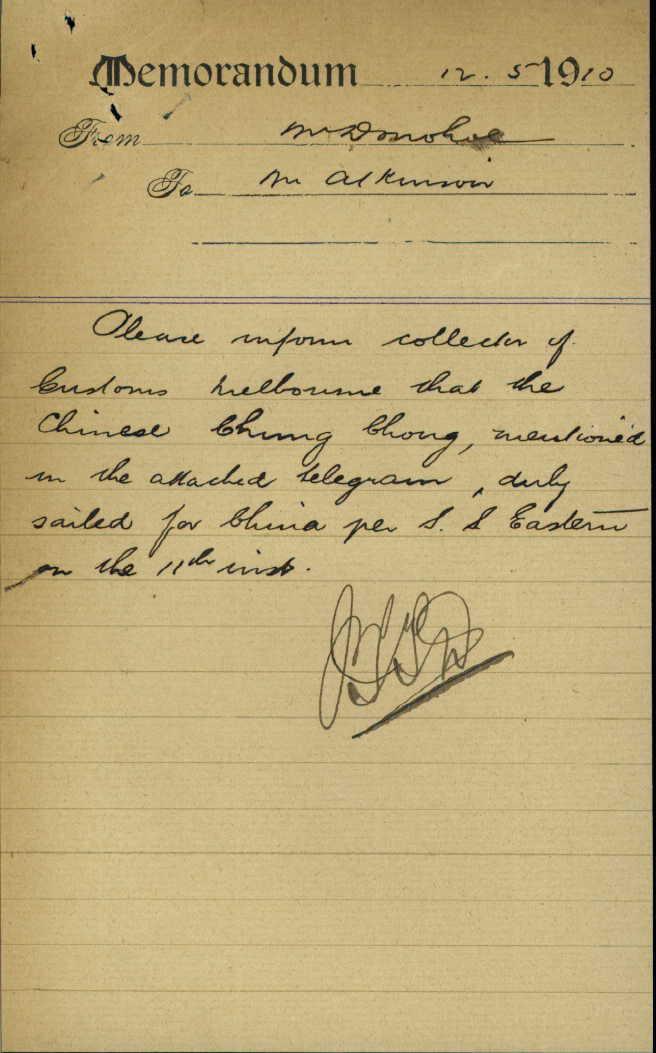 Memorandum 12. 5 1910
From Mr Donohoe
To Mr Atkinson
Please inform collector of
Customs Melbourne that the
Chinese Chung Chong, mentioned
in the attached telegram, duly
sailed for China per S. S Eastern
on the 11th inst.